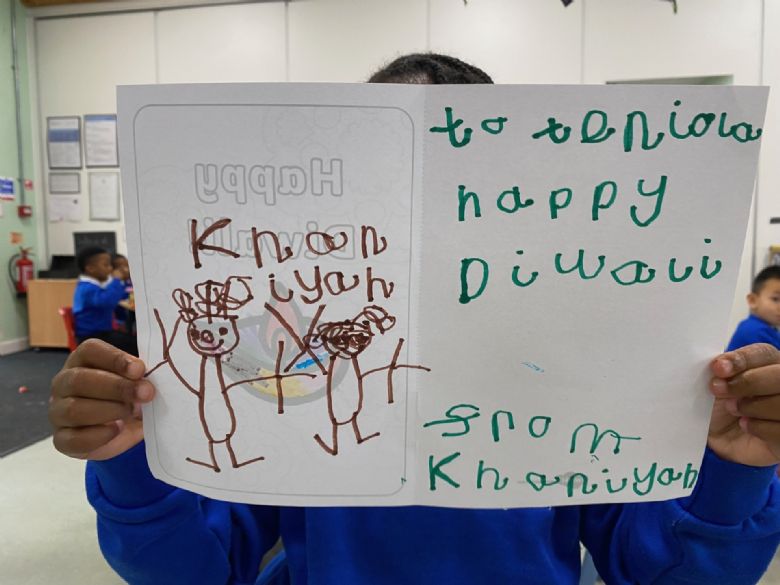 Happy
Diwali
Khan
iyah
to teniola
happy
Diwali
from
Khaniyah